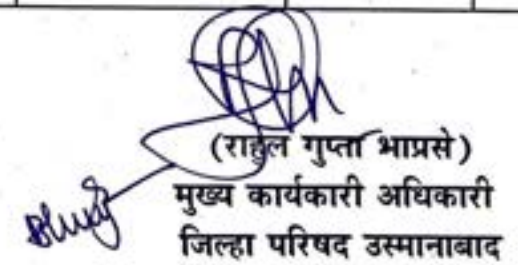 (राहुल गुप्ता भाप्रसे)
मुख्य कार्यकारी अधिकारी
जिल्हा परिषद उस्मानाबाद